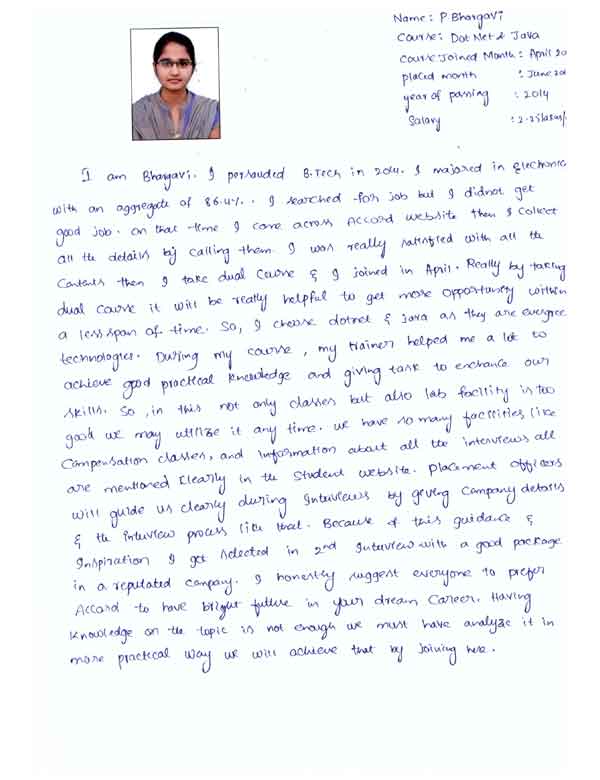 Name: P Bhargavi
Course: Dot Net & Java
Course Joined Month: April 20
placed month : June 20
year of passing : 2014
Salary
I am Bhargavi. I persauded B.Tech in 2014. I majored in Electronic
with an aggregate of 86.4%. I searched for job but I didnot get
good job. On that time I came across Accord website then I collect
all the details by calling them. I was really satisfied with all the
Contents then I take dual course & I joined in April. Really by taking
dual course it will be really helpful to get more opportunity within
a less span of time. So, I choose dotnet & java as they are evergree
technologies. During my course, my trainer helped me a lot to
achieve good practical knowledge and giving task to enchance our
skills. So, in this not only classes but also lab facility is too
good we may utilize it any time. we have so many facilities like
Compensation classes, and information about all the interviews all
are mentioned clearly in the student website. placement officers
will guide us clearly during Interviews by giving Company details
& the interview process like that. Because of this guidance &
Inspiration I get selected in 2nd Interview with a good package
in a reputated company. I honestly suggest everyone to prefer
Accord to have bright future in your dream Career. Having
knowledge on the topic is not enough we must have analyze it in
more practical way we will achieve that by joining here.